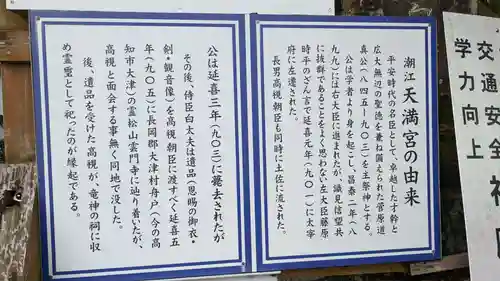 潮江天満宮の由来
平安時代の名臣として、卓越した才幹と
広大無辺の聖徳を兼ね備えられた菅原道
真公(八四五-九〇三)を主祭神とする。
公は学者より身を起こし昌泰二年(八
九九)には右大臣に進まれたが、識見信望共
に抜群であることをよく思わない左大臣藤原
時平のざん言で延喜元年(九〇一)に太宰
府に左遷された。
長男高視朝臣も同時に土佐に流された。
公は延喜三年(九〇三)に薨去されたが
その後、侍臣白太夫は遺品(恩賜の御衣・
剣・観音像)を高視朝臣に渡すべく延喜五
年(九〇五)に長岡郡大津村舟戸(今の高
知市大津)の霊松山雲門寺に辿り着いたが、
高視と面会する事無く同地で没した。
後、遺品を受けた高視が、竜神の祠に収
め霊璽として祀ったのが縁起である。
交通安全
学力向上